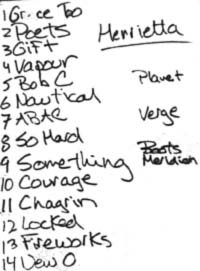 1 Grace Too
2 Poets
3 Gift
4 Vapour
5 Bob C
6 Nautical
7 ABAC
8 So Hard
9 Something
10 Courage
11 Chagrin
12 Locked
13 Fireworks
14 New O.
Henrietta
Planet
Verge
Boots
Meridian